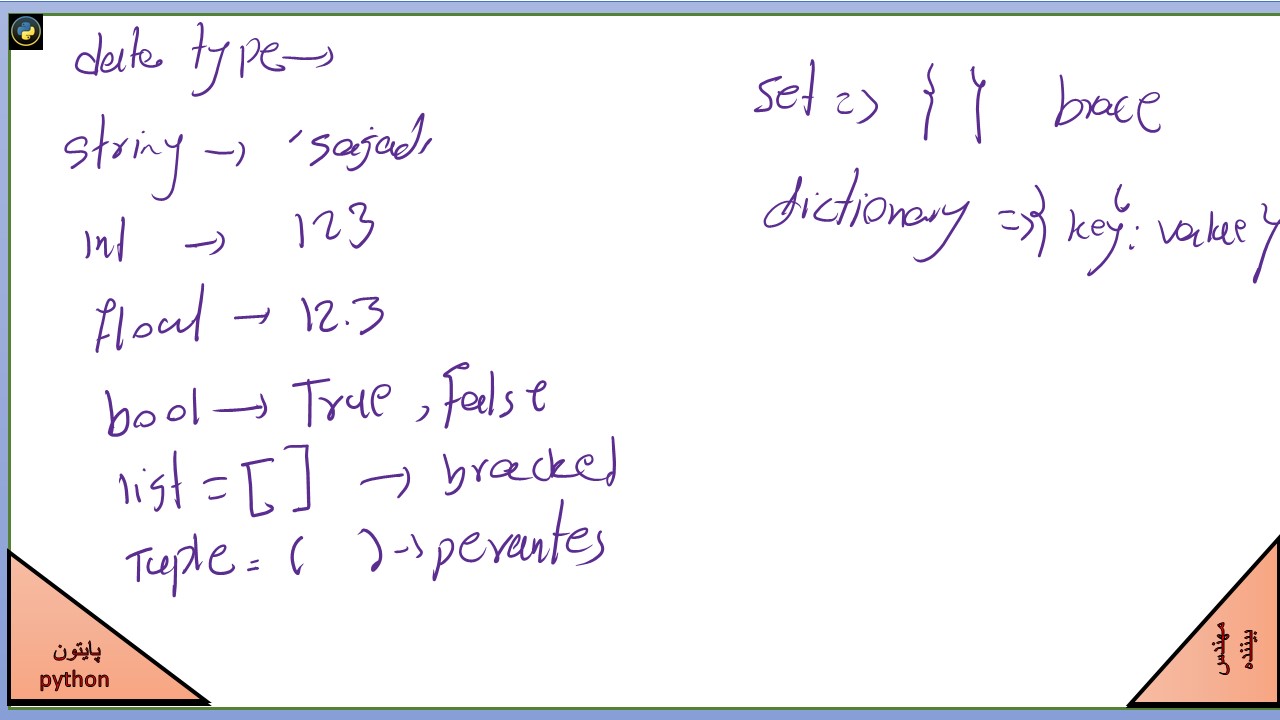 data type →
string → 'sajad'
int → 123
float → 12.3
bool → True , False
list = [ ] → bracked
Tuple = ( ) → perantes
set => { } brace
dictionary => { key : value }
پایتون
python
مهندس
بیننده